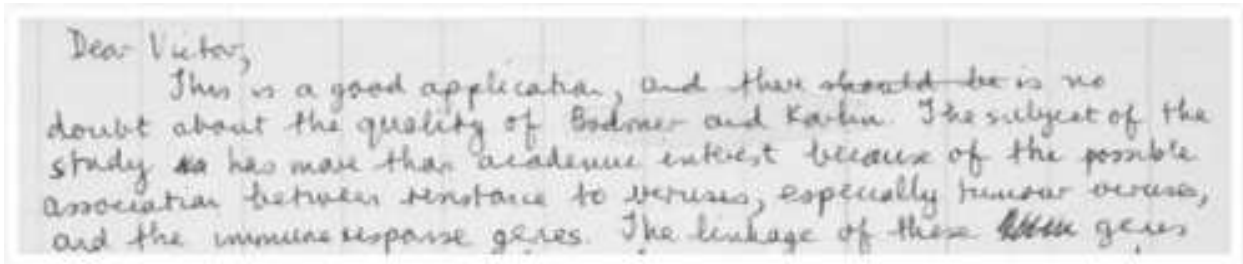 Dear Victor,
This is a good application, and there should be is no
doubt about the quality of Bodmer and Karlin. The subject of the
study has more than academic interest because of the possible
association between resistance to viruses, especially tumour viruses,
and the immune response genes. The linkage of these genes